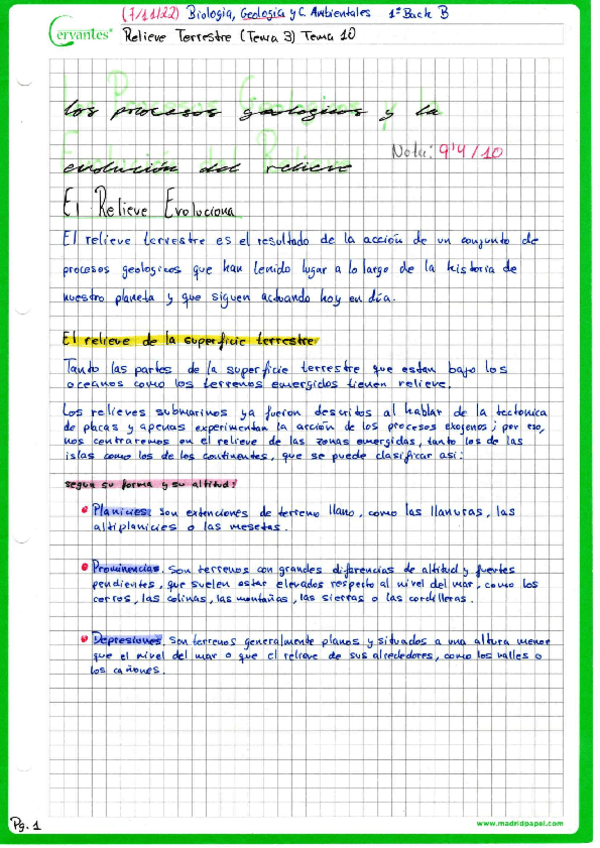 (7/11/22) Biología, Geología y C. Ambientales 1º Bach B
Cervantes®
Relieve Terrestre (Tema 3) Tema 10
Los procesos geologicos y la
Nota: 9'4/10
evolución del relieve
El Relieve Evoluciona
El relieve terrestre es el resultado de la acción de un conjunto de
procesos geologicos que han tenido lugar a lo largo de la historia de
nuestro planeta y que siguen actuando hoy en día.
El relieve de la superficie terrestre
Tanto las partes de la superficie terrestre que estan bajo los
oceanos como los terrenos emergidos tienen relieve.
Los relieves submarinos ya fueron descritos al hablar de la tectonica
de placas y apenas experimentan la acción de los procesos exogenos; por eso,
nos centraremos en el relieve de las zonas emergidas, tanto los de las
islas como los de los continentes, que se puede clasificar asi:
segun su forma y su altitud:
• Planicies: Son extenciones de terreno llano, como las llanuras, las
altiplanicies o las mesetas.
• Prominencias. Son terrenos con grandes diferencias de altitud y fuertes
pendientes, que suelen estar elevados respecto al nivel del mar, como los
cerros, las colinas, las montañas, las sierras o las cordilleras.
• Depresiones. Son terrenos generalmente planos y situados a una altura menor
que el nivel del mar o que el relieve de sus alrededores, como los valles o
los cañones.
Pg. 1
www.madridpapel.com